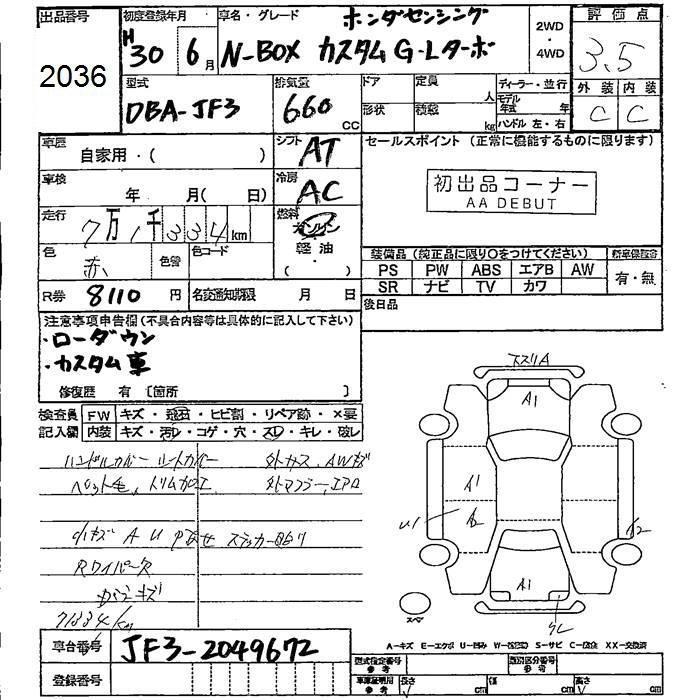 出品番号 初度登録年月 車名・グレード ホンダセンシング 2WD・4WD 評価点
2036 H30 6月 N-BOX カスタム G・Lターボ 3.5
型式 排気量 ドア 定員 人 ディーラー・並行 外装 内装
DBA-JF3 660 CC 形状 積載 kg モデル年式 年 ハンドル 左・右 C C
車歴 自家用・( ) シフト AT セールスポイント (正常に機能するものに限ります)
車検 年 月( 日) 冷房 AC 初出品コーナー
AA DEBUT
走行 7万1千334km 燃料 ガソリン
軽油
色 赤 色替 色コード 装備品 (純正品に限り○をつけてください) 新車保証書
PS PW ABS エアB AW 有・無
SR ナビ TV カワ
R券 8110円 名変通知期限 月 日 後日品
注意事項申告欄 (不具合内容等は具体的に記入して下さい)
・ローダウン
・カスタム車
修復歴 有 〔箇所 〕
検査員 FW キズ・飛石・ヒビ割・リペア跡・×要
記入欄 内装 キズ・汚レ・コゲ・穴・スレ・キレ・破レ
ハンドルカバー シートカバー 外ガラス、AWキズ
ペット毛、トリム加工 外マフラー、エアロ
小キズ A U P色あせ ステッカー貼り
Rワイパー欠
ガラスキズ
71334km
ススリA
A1
A1
A2
U1
A1
スペア
A-キズ E-エクボ U-凹み W-波(補修) S-サビ C-腐食 XX-交換済
車台番号 JF3-2049672 型式指定番号 参考 類別区分番号 参考
登録番号 車庫証明用 参考 長さ cm 幅 cm 高さ cm